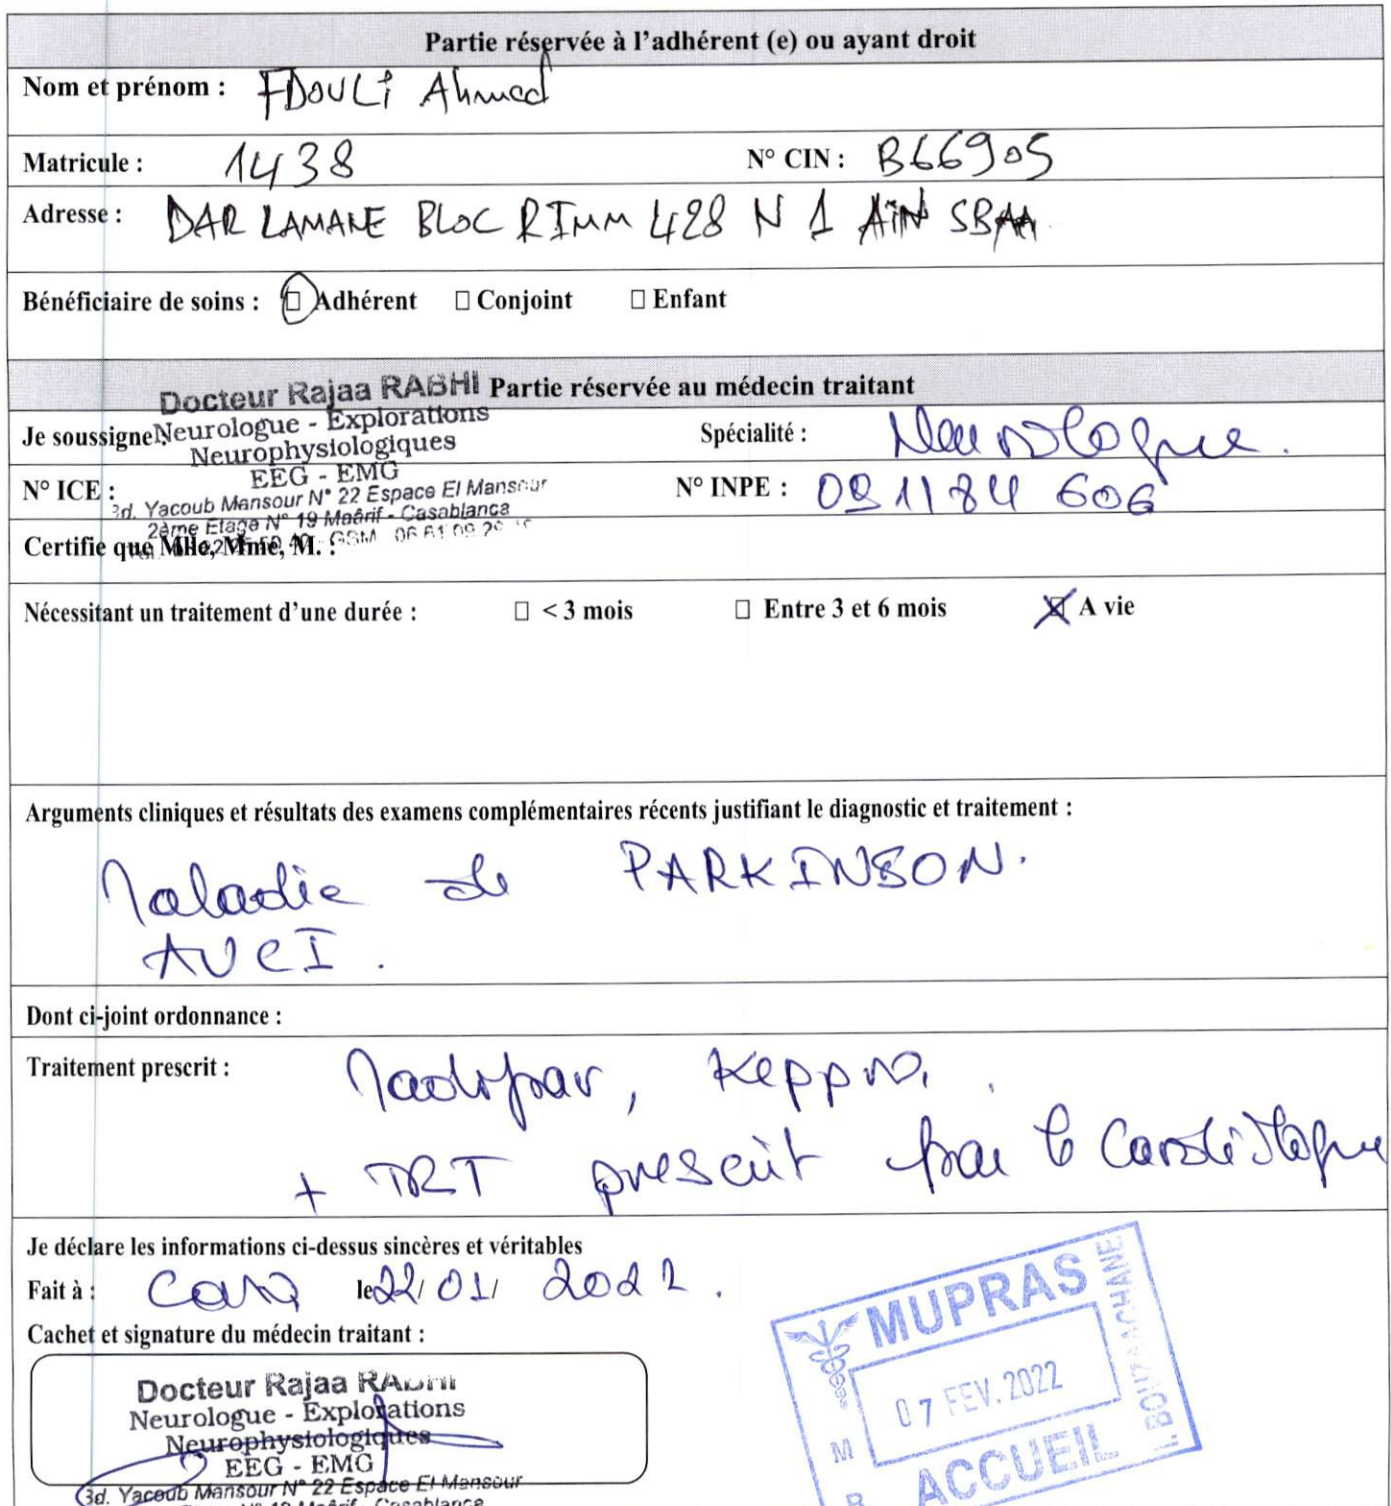 Partie réservée à l'adhérent (e) ou ayant droit
Nom et prénom : FDOULI Ahmed
Matricule : 1438 N° CIN : B66905
Adresse : DAR LAMANE BLOC R IMM 428 N 1 AIN SBAA
Bénéficiaire de soins : □ Adhérent □ Conjoint □ Enfant
Docteur Rajaa RABHI Partie réservée au médecin traitant
Neurologue - Explorations
Je soussigne Spécialité : Neurologue.
Neurophysiologiques
EEG - EMG
N° ICE : N° INPE : 091184606
Bd. Yacoub Mansour N° 22 Espace El Mansour
2ème Etage N° 19 Maârif - Casablanca
GSM 06 61 09
Certifie que Mlle, Mme, M. :
Nécessitant un traitement d'une durée : □ < 3 mois □ Entre 3 et 6 mois ☒ A vie
Arguments cliniques et résultats des examens complémentaires récents justifiant le diagnostic et traitement :
Maladie de PARKINSON.
AVCI.
Dont ci-joint ordonnance :
Traitement prescrit : Madopar, Keppra.
+ TRT prescrit par le Cardiologue
Je déclare les informations ci-dessus sincères et véritables
Fait à : Casa le 22/01/2022.
Cachet et signature du médecin traitant :
Docteur Rajaa RABHI
Neurologue - Explorations
Neurophysiologiques
EEG - EMG
Bd. Yacoub Mansour N° 22 Espace El Mansour
N° 19 Maârif - Casablanca
MUPRAS
07 FEV. 2022
ACCUEIL